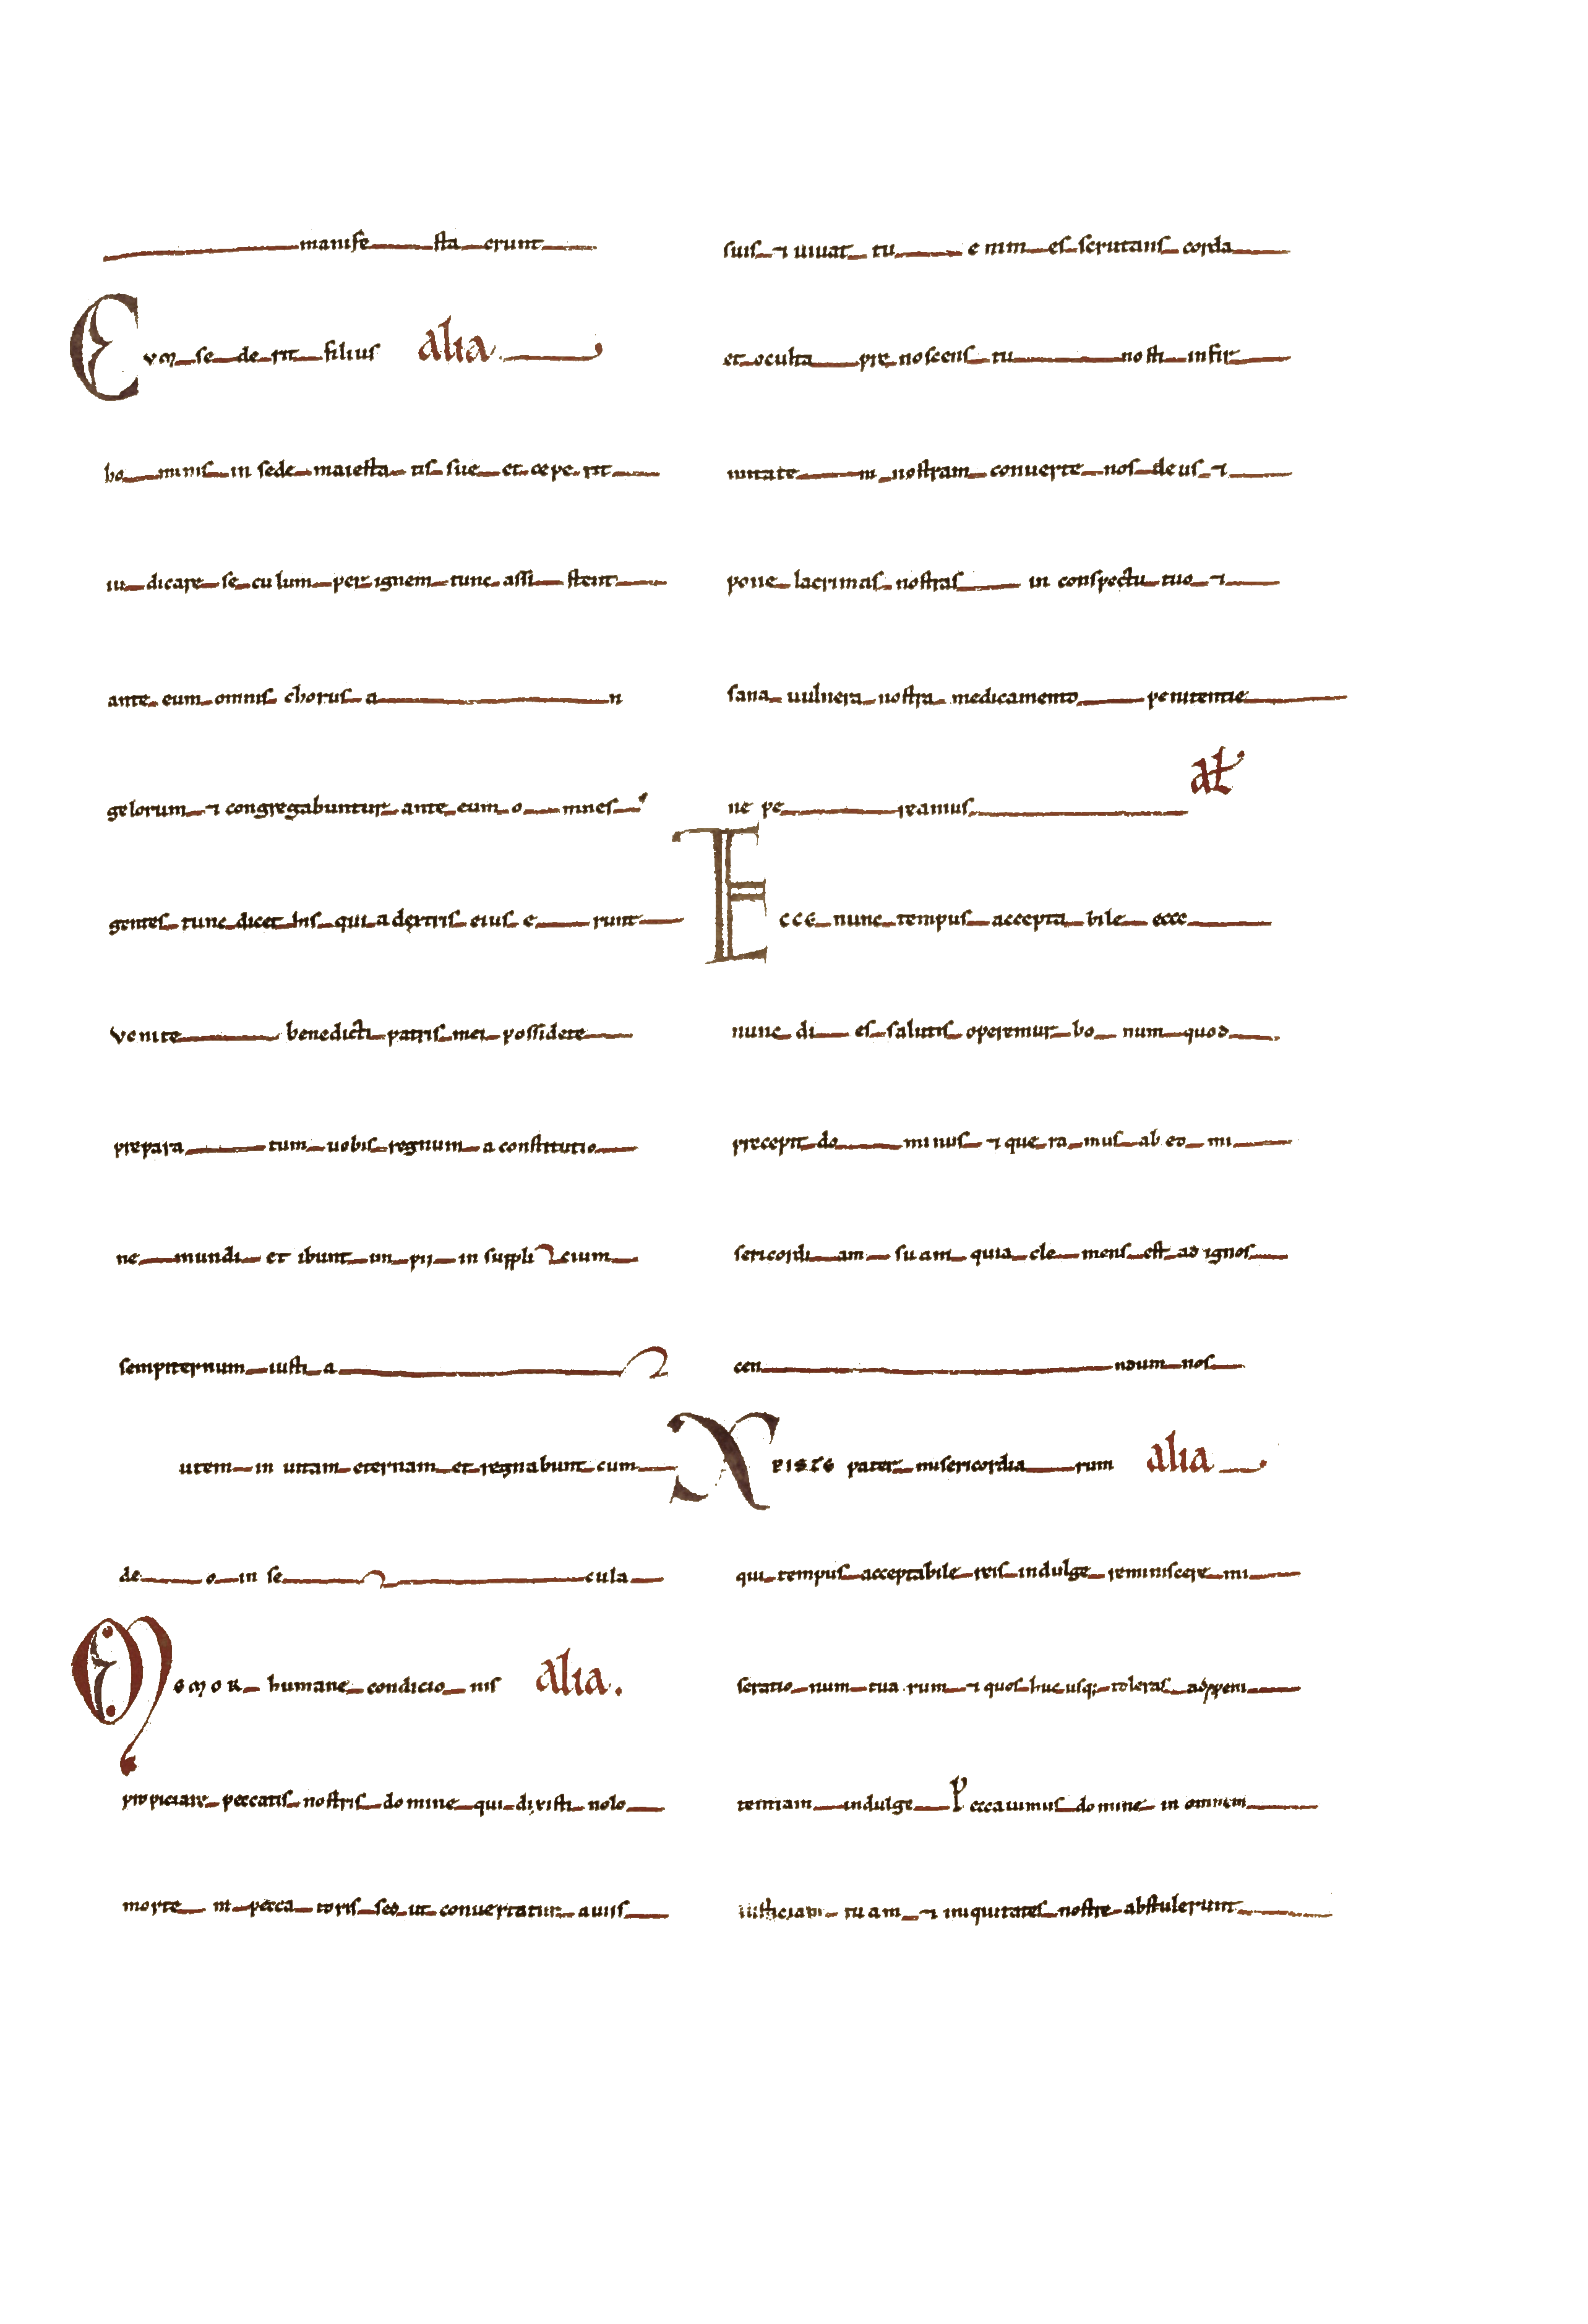 manife sta erunt
Cum se de rit filius alia.
ho minis in sede maiesta tis sue et cepe rit
iu dicare se cu lum per ignem tunc assi stent
ante eum omnis chorus a n
gelorum ⁊ congregabuntur ante eum o mnes
gentes tunc dicet his qui a dextris eius e runt
venite benedicti patris mei possidete
prepara tum uobis regnum a constitutio
ne mundi et ibunt im pij in suppli cium
sempiternum iusti a
utem in uitam eternam et regnabunt cum
de o in se cula
Memor humane condicio nis alia.
propiciare peccatis nostris do mine qui dixisti nolo
morte m pecca toris sed ut convertatur a uiis
suis ⁊ uiuat tu e nim es scrutans corda
et oculta pre noscens tu no sti infir
mitate m nostram conuerte nos de us ⁊
pone lacrimas nostras in conspectu tuo ⁊
sana uulnera nostra medicamento penitentie
ne pe reamus al
Ecce nunc tempus accepta bile ecce
nunc di es salutis operemur bo num quod
precepit do mi nus ⁊ que ra mus ab eo mi
sericordi am su am quia cle mens est ad ignos
cen ndum nos
Xriste pater misericordia rum alia
qui tempus acceptabile reis indulge reminiscere mi
seratio num tua rum ⁊ quos huc usq; toleras ad peni
tentiam indulge Peccauimus do mine in omnem
iusticiam tu am ⁊ iniquitates nostre abstulerunt